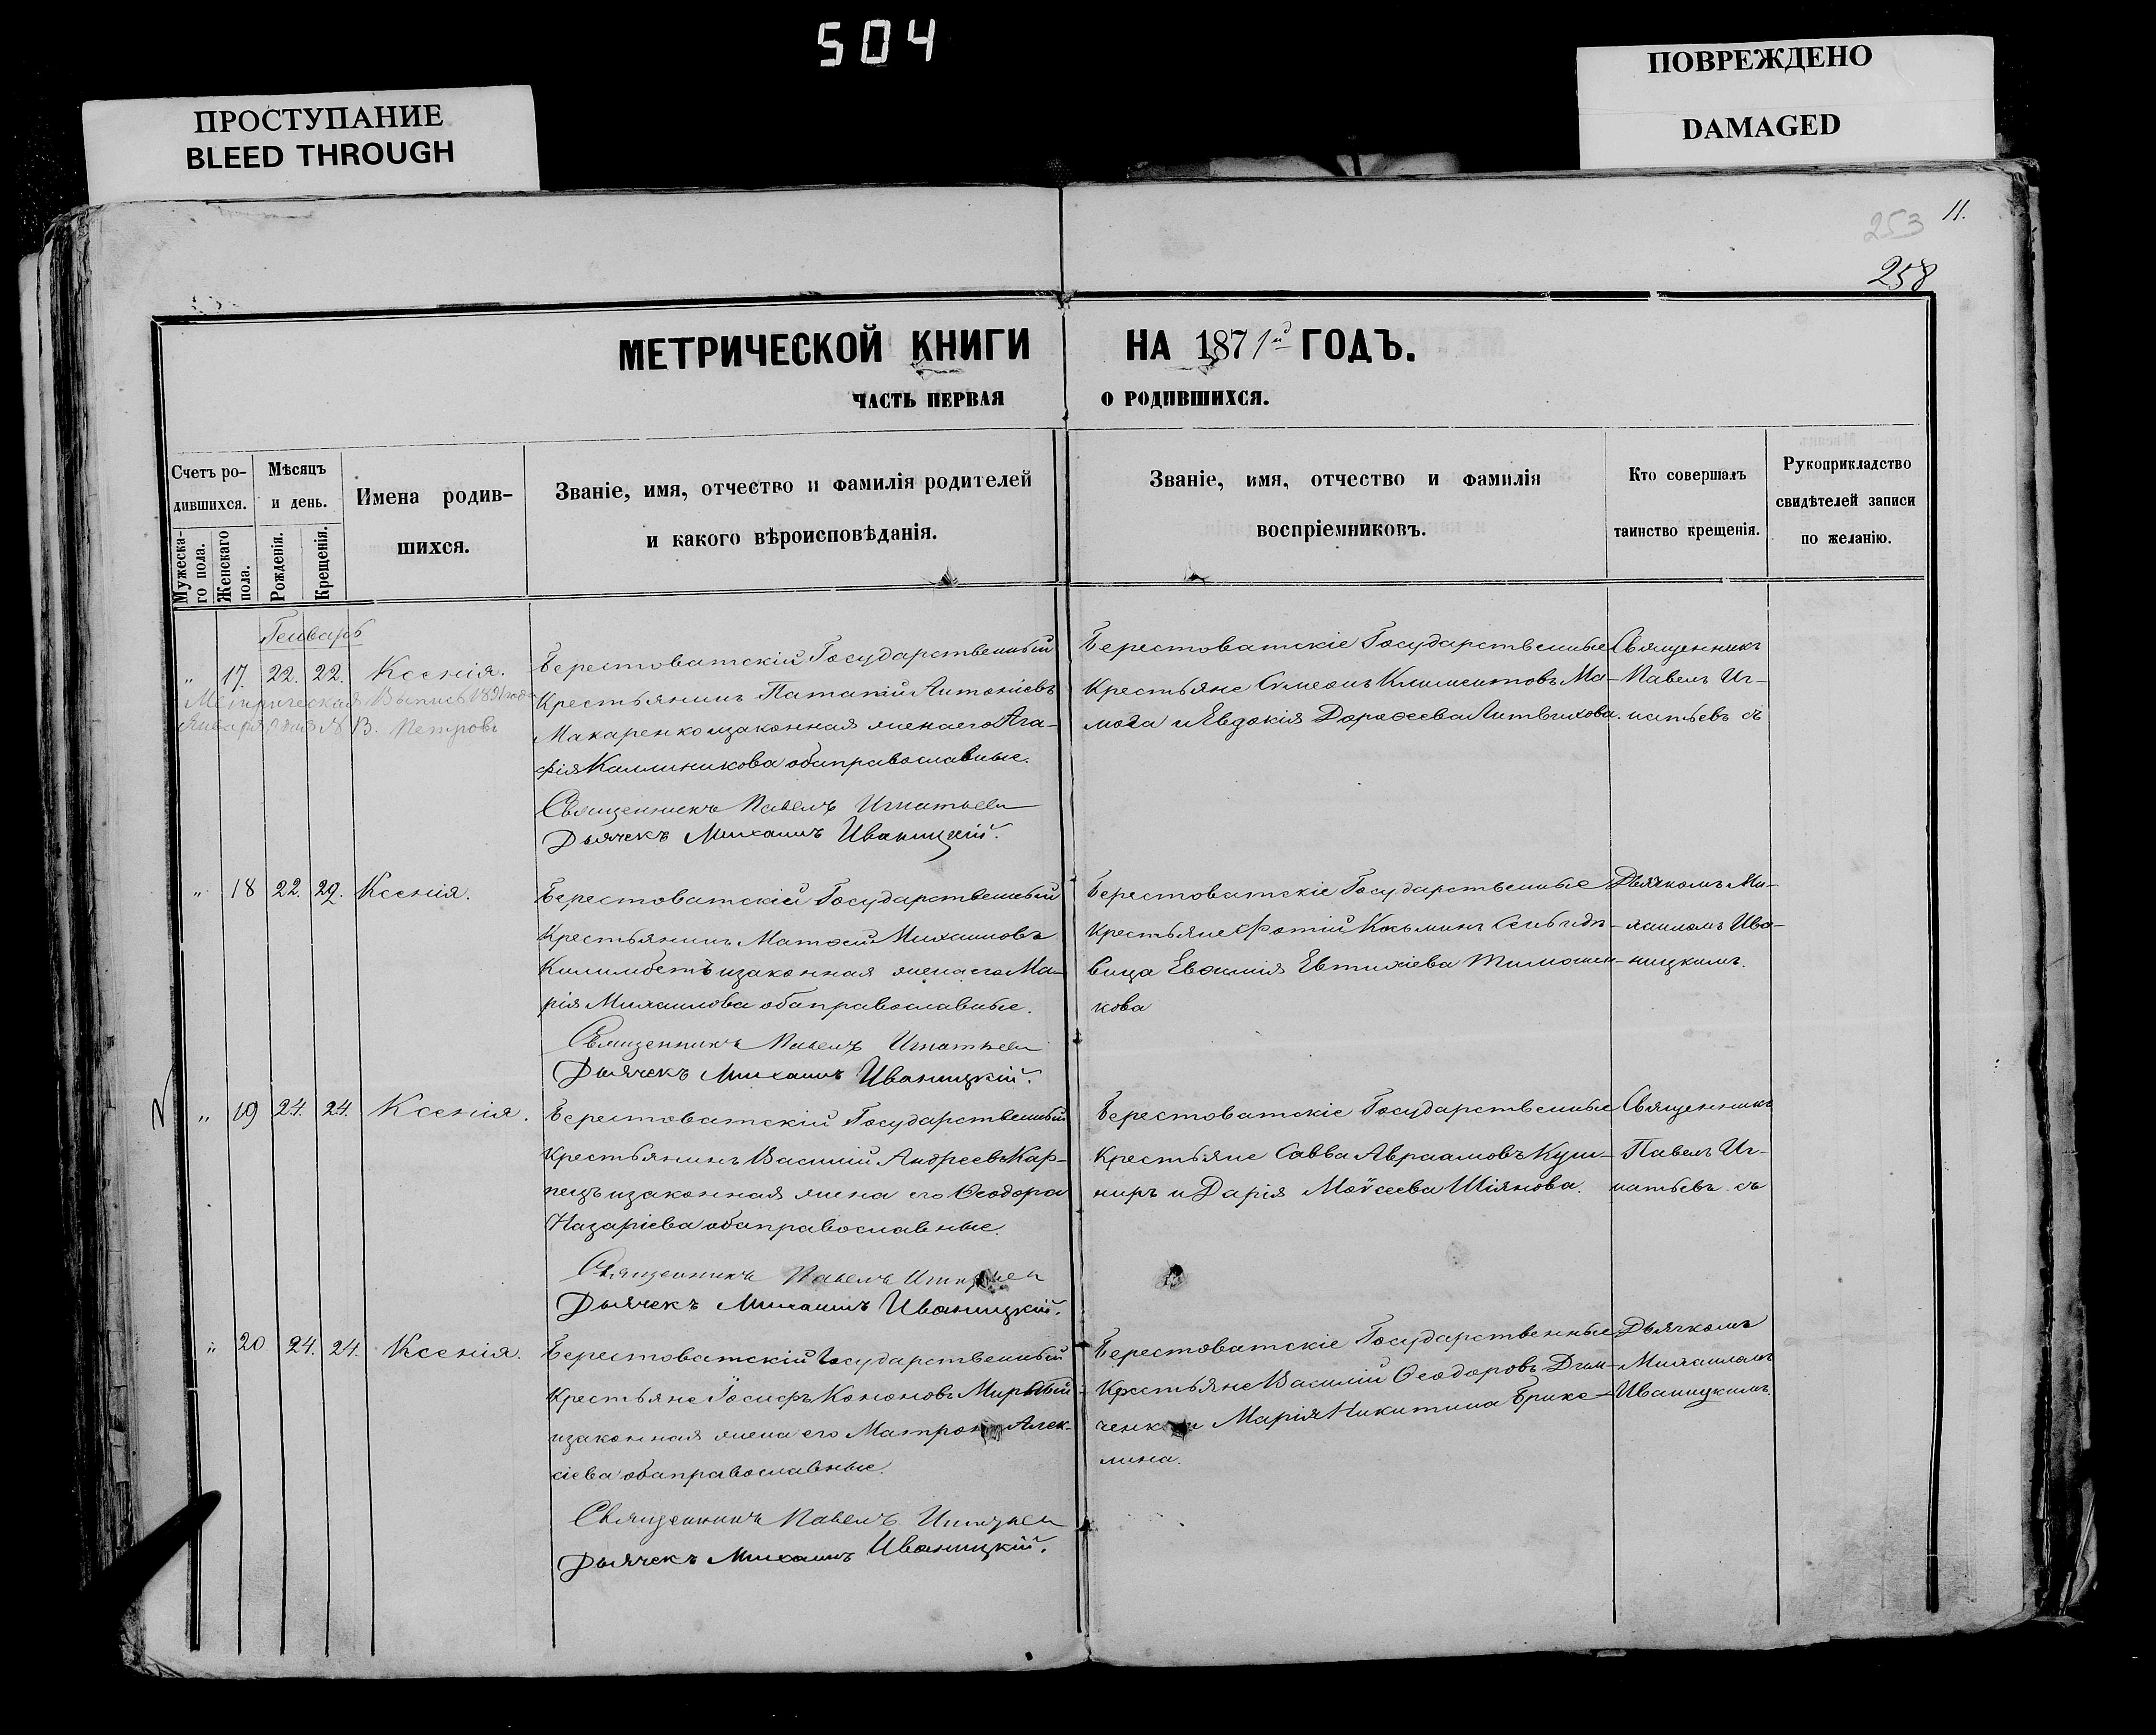 504
ПРОСТУПАНИЕ
BLEED THROUGH
ПОВРЕЖДЕНО
DAMAGED
11.
253
258
МЕТРИЧЕСКОЙ КНИГИ НА 1871й ГОДЪ.
ЧАСТЬ ПЕРВАЯ О РОДИВШИХСЯ.
Счетъ ро-
дившихся.
Мужеска-
го пола.
Женскаго
пола.
Мѣсяцъ
и день.
Рожденія.
Крещенія.
Имена родив-
шихся.
Званіе, имя, отчество и фамилія родителей
и какого вѣроисповѣданія.
Званіе, имя, отчество и фамилія
воспріемниковъ.
Кто совершалъ
таинство крещенія.
Рукоприкладство
свидѣтелей записи
по желанію.
Генварь
„ 17. 22. 22. Ксенія.
Метрическая Выпись 1891 года
Января В. Петровъ
Берестоватскій Государственный
Крестьянинъ Патапій Антоніевъ
Макаренко изаконная жена его Ага-
фія Каллиникова обаправославные.
Священникъ Павелъ Игнатьевъ
Дьячекъ Михаилъ Иваницкій.
Берестоватскіе Государственные
Крестьяне Симеонъ Климентовъ Ма-
мота и Евдокія Дорофеева Литвинова.
Священникъ
Павелъ Иг-
натьевъ съ
„ 18 22. 29. Ксенія.
Берестоватскій Государственный
Крестьянинъ Матфей Михаиловъ
Килимбетъ изаконная жена его Ма-
рія Михаилова обаправославные.
Священникъ Павелъ Игнатьевъ
Дьячекъ Михаилъ Иваницкій.
Берестоватскіе Государственные
Крестьяне Фотій Косьминъ
вица Евфимія Евтихіева Тимошен-
кова
Дьячкомъ Ми-
хаиломъ Ива-
ницкимъ.
„ 19 24. 24. Ксенія.
Берестоватскій Государственный
Крестьянинъ Василій Андреевъ Кар-
пецъ изаконная жена его Ѳеодора
Назаріева обаправославные.
Священникъ Павелъ Игнатьевъ
Дьячекъ Михаилъ Иваницкій.
Берестоватскіе Государственные
Крестьяне Савва Авраамовъ Куш-
ниръ и Дарія Моѵсеева Шіянова.
Священникъ
Павелъ Иг-
натьевъ съ
„ 20 24. 24. Ксенія.
Берестоватскій Государственный
Крестьяне Іосифъ Кононовъ Мирный
изаконная жена его Матрона Алек-
сіева обаправославные.
Священникъ Павелъ Игнатьевъ
Дьячекъ Михаилъ Иваницкій.
Берестоватскіе Государственные
Крестьяне Василій Ѳеодоровъ Дем-
ченко и Марія Никитина Брике-
лина.
Дьячкомъ
Михаиломъ
Иваницкимъ.